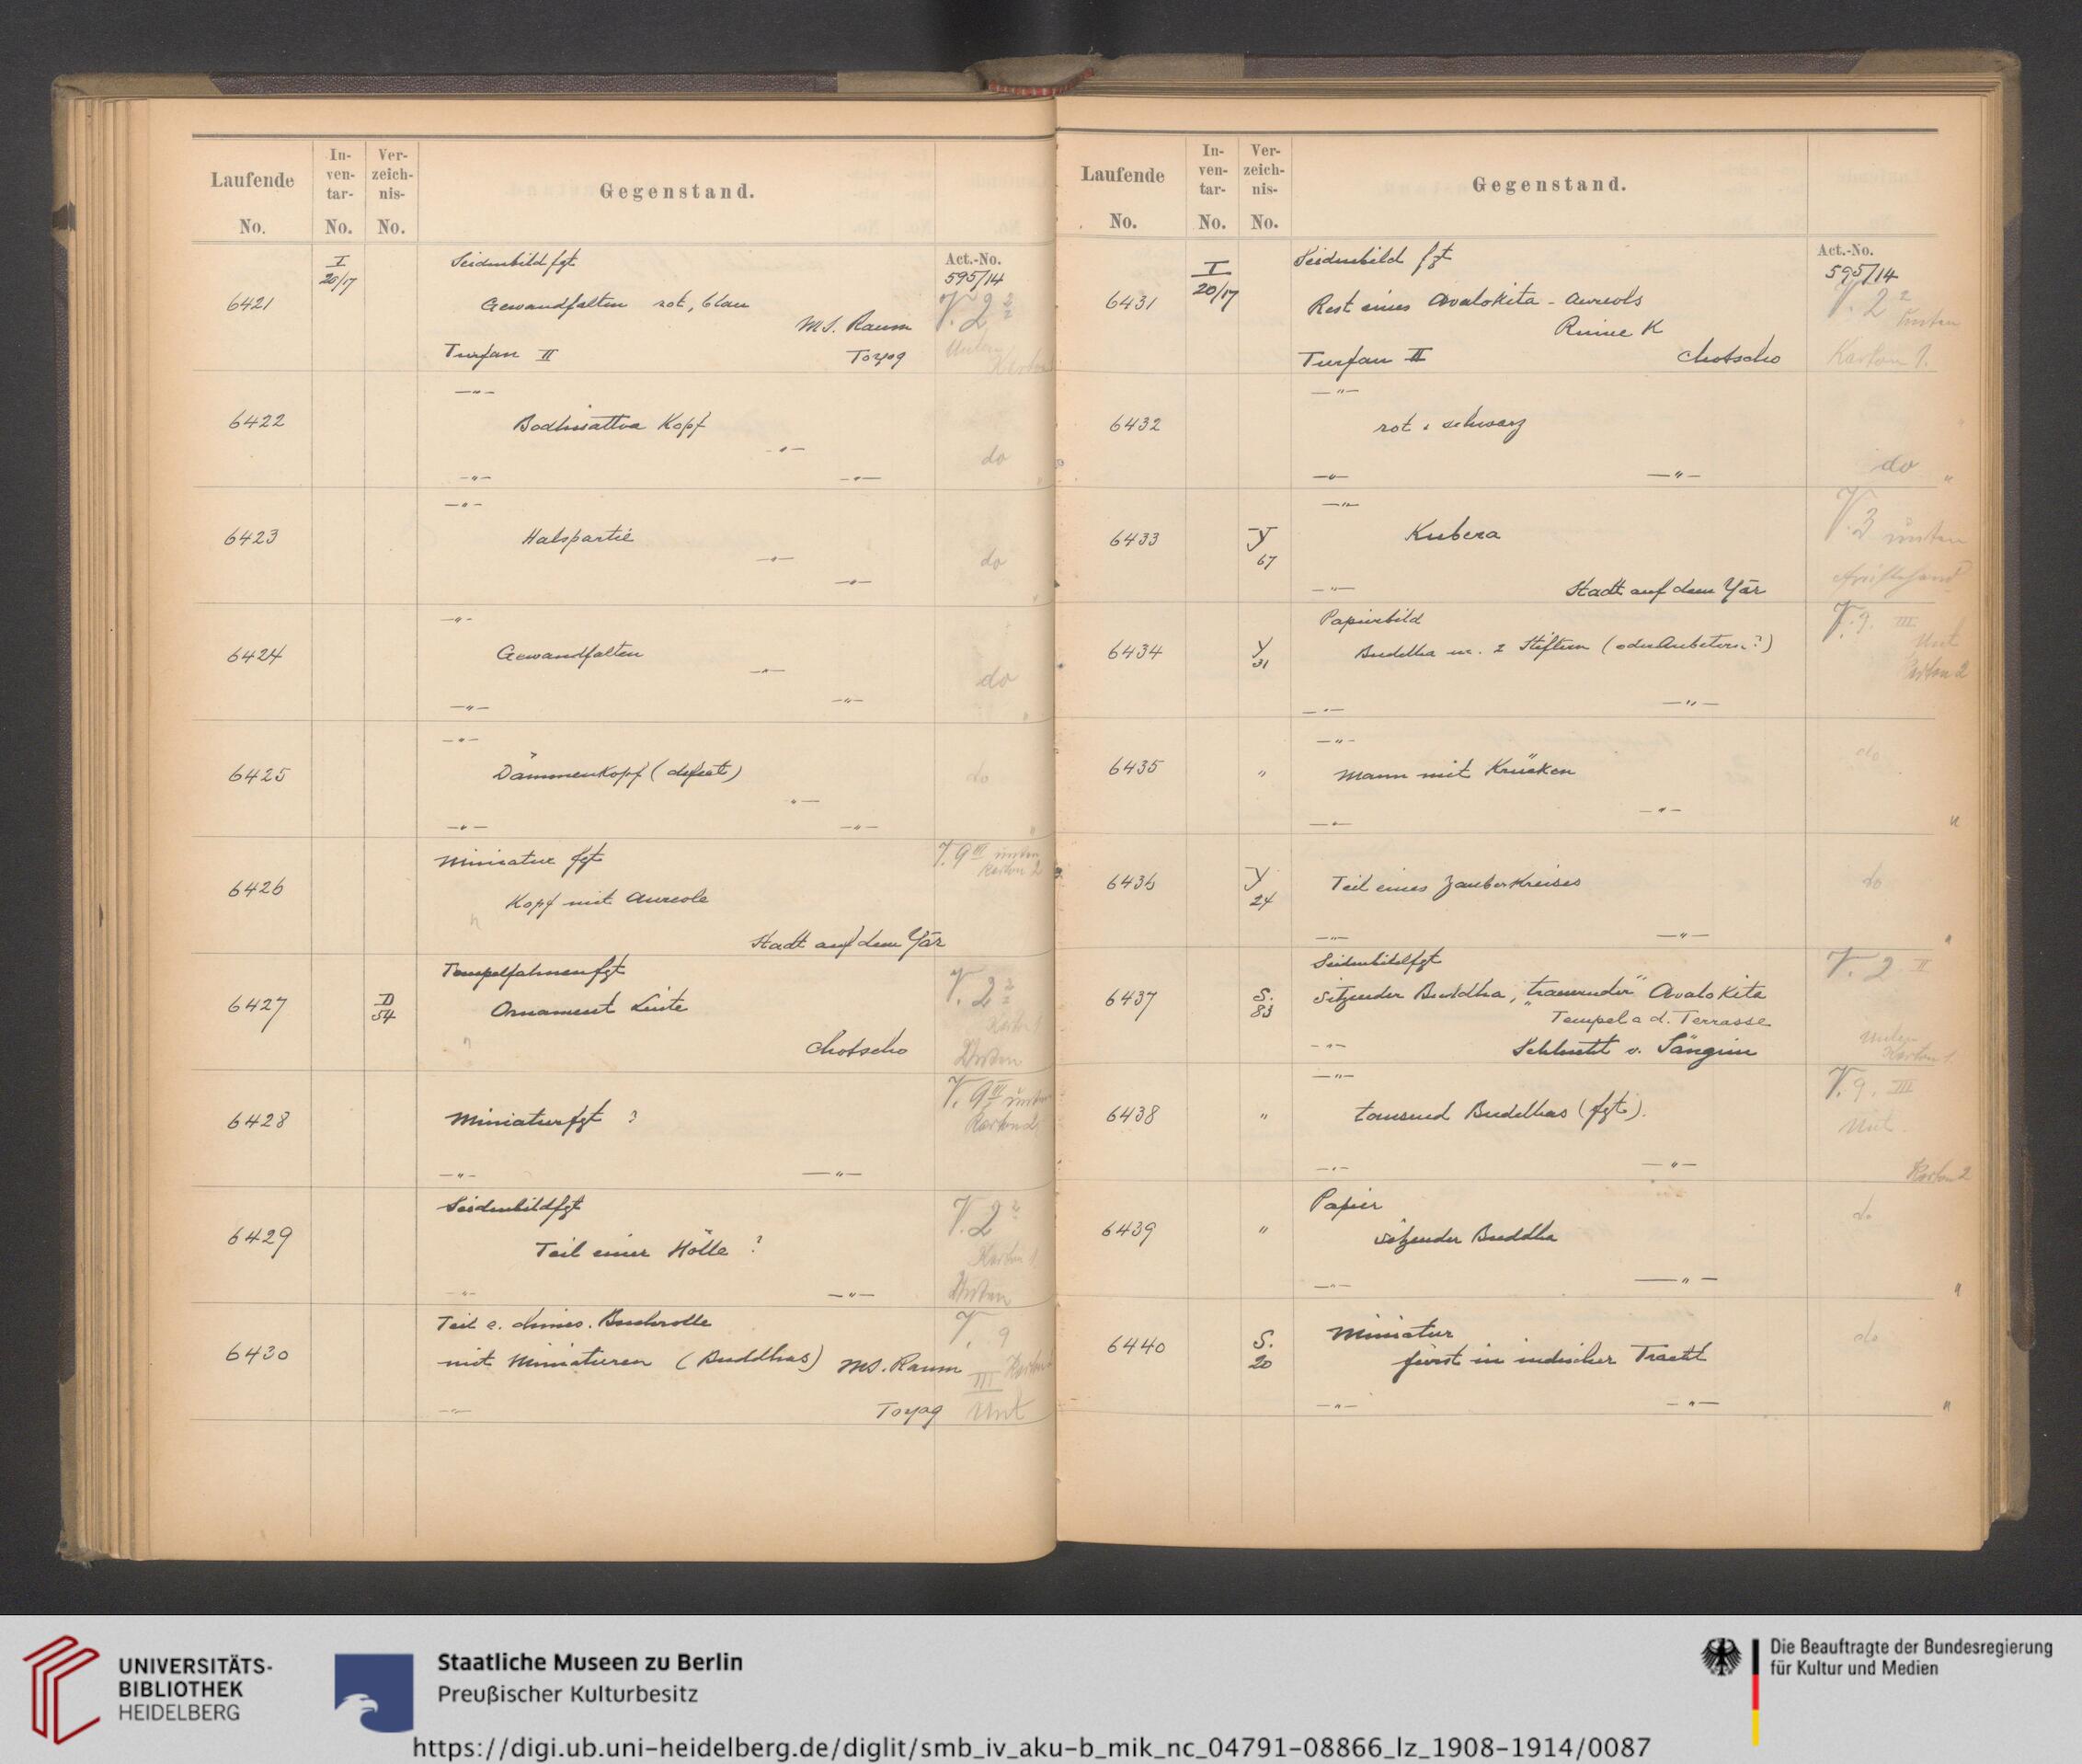 Laufende No.
In-ven-tar-No.
Ver-zeich-nis-No.
Gegenstand.
I 20/17
Seidenbild fgt
Act.-No. 595/14
6421
Gewandfalten rot, blau
V. 2 2/2
MS. Raum
Unten
Turfan II
Toyog
Karton
—〃—
6422
Bodhisattva Kopf
—〃—
do
—〃— —〃—
—〃—
6423
Halspartie
—〃—
do
—〃—
—〃—
6424
Gewandfalten
—〃—
do
—〃— —〃—
—〃—
6425
Dämmenkopf (defect)
do
—〃—
—〃— —〃—
Miniatur fgt
V. 9 III unten
Karton 2
6426
Kopf mit Aureole
Stadt auf dem Yär
Tempelfahnenfgt
V. 2 2/2
6427
D 54
Ornament Leiste
Karton 1
Chotscho
Unten
V. 9 III unten
6428
Miniaturfgt ?
Karton 2
—〃— —〃—
Seidenbildfgt
V. 2 2
6429
Teil einer Hölle ?
Karton 1
—〃— —〃—
Unten
Teil e. chines. Buchrolle
V. 9
6430
mit Miniaturen (Buddhas) MS. Raum
III Karton
—〃—
Toyog
Unt
Laufende No.
In-ven-tar-No.
Ver-zeich-nis-No.
Gegenstand.
I 20/17
Seidenbild fgt
Act.-No. 595/14
6431
Rest eines Avalokita - Aureols
V. 2 2 Unten
Ruine K
Turfan II
Chotscho
Karton 1.
—〃—
6432
rot u schwarz
do
—〃— —〃—
—〃—
6433
Y 67
Kubera
V. 3 unten
—〃—
Stadt auf dem Yär
Papierbild
V. 9. III
6434
Y 31
Buddha m. 2 Stiftern (oder Anbetern?)
Unt
Karton 2
—〃— —〃—
—〃—
6435
〃
Mann mit Krücken
do
—〃—
—〃—
〃
6436
Y 24
Teil eines Zauberkreises
do
—〃— —〃—
〃
Seidenbildfgt
V. 2 II
6437
S. 83
Sitzender Buddha, „trauernder" Avalokita
Tempel a d. Terrasse
—〃—
Schlucht v. Sängim
Unten
Karton 1.
—〃—
V. 9. III
6438
〃
tausend Buddhas (fgt).
Unt.
—〃— —〃—
Karton 2
Papier
6439
〃
Sitzender Buddha
do
—〃— —〃—
〃
Miniatur
6440
S. 20
Fürst in indischer Tracht
do
—〃— —〃—
〃
UNIVERSITÄTS-
BIBLIOTHEK
HEIDELBERG
Staatliche Museen zu Berlin
Preußischer Kulturbesitz
Die Beauftragte der Bundesregierung
für Kultur und Medien
https://digi.ub.uni-heidelberg.de/diglit/smb_iv_aku-b_mik_nc_04791-08866_lz_1908-1914/0087